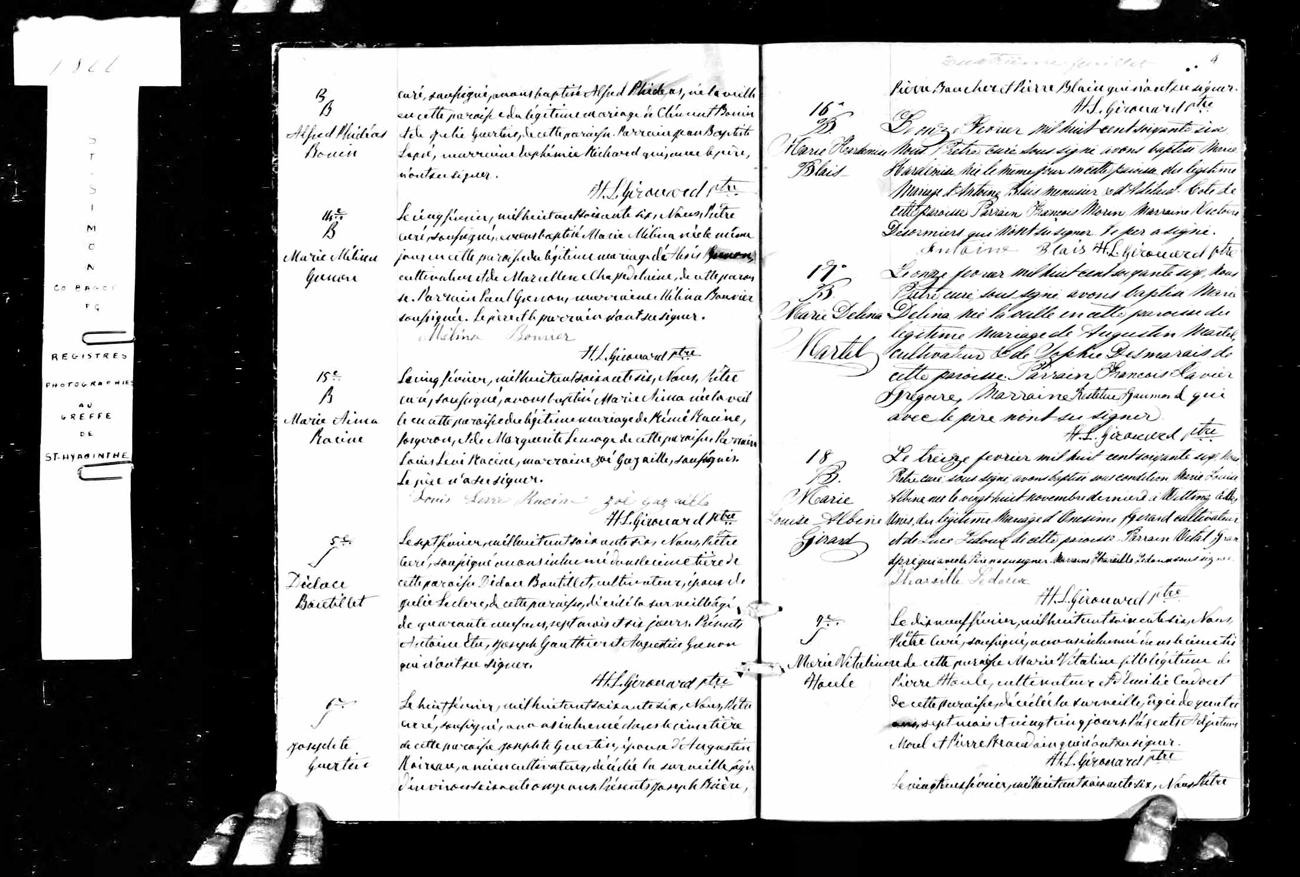 1866
ST. SIMON
CO. BAGOT
P.Q.
REGISTRES
PHOTOGRAPHIÉS
AU
GREFFE
DE
ST-HYACINTHE
B
B
Alfred Phidéas
Bouin
curé, soussigné, avons baptisé Alfred Phidéas, né la veille
en cette paroisse du légitime mariage de Clément Bouin
et de Julie Guertin, de cette paroisse. Parrain Jean Baptiste
marraine Euphémie Richard qui, avec le père,
n'ont su signer.
H. L. Girouard ptre
14e
B
Marie Mélina
Grenon
Le cinq février, mil huit cent soixante six, Nous, Prêtre
curé, soussigné, avons baptisé Marie Mélina née le même
jour en cette paroisse du légitime mariage de Grenon,
cultivateur et de Marcelline Chapdelaine, de cette parois
se. Parrain Paul Grenon, marraine Mélina Bouvier
soussignée. Le père et le parrain n'ont su signer.
Mélina Bouvier
H. L. Girouard ptre
15e
B
Marie Aima
Racine
Le cinq février, mil huit cent soixante six, Nous, Prêtre
curé, soussigné, avons baptisé Marie Aima née la veil
le en cette paroisse du légitime mariage de Rémi Racine,
forgeron, et de Marguerite de cette paroisse. Parrain
Louis Lévi Racine, marraine Zoé Gazaille, soussignés.
Le père n'a su signer.
Louis Levi Racine Zoé Gazaille
H. L. Girouard ptre
5e
S
Didace
Boutillet
Le sept février, mil huit cent soixante six, Nous, Prêtre
Curé, soussigné avons inhumé dans le cimetière de
cette paroisse Didace Boutillet, cultivateur, époux de
Julie Leclerc, de cette paroisse, décédé la surveille âgé
de quarante neuf ans, sept mois et six jours. Présents
Antoine Joseph Gauthier et Augustin Grenon
qui n'ont su signer.
H. L. Girouard ptre
6e
S
Josephte
Guertin
Le huit février, mil huit cent soixante six, Nous, Prêtre
curé, soussigné, avons inhumé dans le cimetière
de cette paroisse Josephte Guertin, épouse d'Augustin
ancien cultivateur, décédée la surveille, âgée
d'environ soixante onze ans. Présents Joseph
quatrième feuillet
4
Pierre Boucher et Pierre Blain qui n'ont su signer.
H. L. Girouard ptre
16e
B
Marie
Blais
Le onze Février mil huit cent soixante six
Nous Prêtre curé sous signé avons baptisé Marie
née le même jour en cette paroisse du légitime
Mariage d'Antoine Blais menuisier et d' Coté de
cette paroisse Parrain François Morin Marraine Victoire
Désormiers qui n'ont su signer le père a signé.
Antoine Blais H. L. Girouard ptre
17e
B
Marie Delina
Martel
Le onze février mil huit cent soixante six, Nous
Prêtre curé sous signé avons baptisé Marie
Delina née la veille en cette paroisse du
légitime mariage de Augustin Martel
cultivateur & de Sophie Desmarais de
cette paroisse Parrain François Xavier
Grégoire, Marraine Gaumond qui
avec le père n'ont su signer
H. L. Girouard ptre
18
B.
Marie
Louise Albine
Girard
Le treize février mil huit cent soixante six, Nous
Prêtre curé sous signé avons baptisé sous condition Marie Louise
Albine née le vingt huit novembre dernier à
Unis, du légitime Mariage d'Onesime Girard cultivateur
et de Luce Ledoux de cette paroisse Parrain Vital
qui avec le Père n'a su signer. Marraine Tharsille Ledoux sous signée
Tharsille Ledoux
H. L. Girouard ptre
7e
S
Marie Vitaline
Houle
Le dix neuf février, mil huit cent soixante six, Nous,
Prêtre Curé, soussigné, avons inhumé dans le cimetiè
re de cette paroisse Marie Vitaline fille légitime de
Pierre Houle, cultivateur et d'Émilie Cadoret
de cette paroisse, décédée la surveille, âgée de quatre
ans, sept mois et vingt cinq jours Présents
Morel et Pierre qui n'ont su signer.
H. L. Girouard ptre
Le vingt février, mil huit cent soixante six, Nous Prêtre